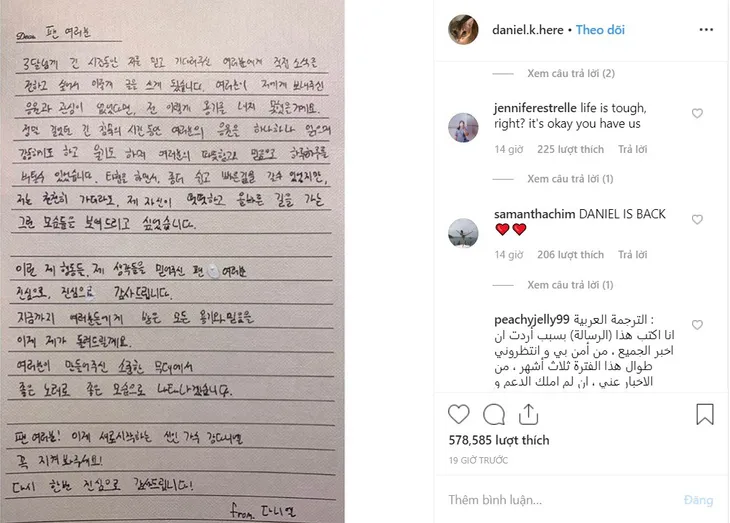 Dear. 팬 여러분
3달넘게 긴 시간동안 저를 믿고 기다려주신 여러분에게 직접 소식을
전하고 싶어서 이렇게 글을 쓰게 됐습니다. 여러분이 저에게 보내주신
응원과 관심이 없었다면, 전 이렇게 용기를 내지 못했을거에요.
정말 길었던 긴 침묵의 시간 동안 여러분의 응원을 하나하나 읽으며
감동하기도 하고 울기도 하며 여러분의 따뜻함과 믿음으로 하루하루를
버틸수 있었습니다. 타협을 하면서, 좀더 쉽고 빠른길을 갈수 있었지만,
저는 천천히 가더라도, 제 자신이 떳떳하고 올바른 길을 가는
그런 모습들을 보여드리고 싶었습니다.
이런 제 행동들, 제 생각들을 믿어주신 팬 여러분
진심으로, 진심으로 감사드립니다.
지금까지 여러분들에게 받은 모든 용기와 믿음을
이제 제가 돌려드릴게요.
여러분이 만들어주신 소중한 무대에서
좋은 노래로 좋은 모습으로 나타나겠습니다.
팬 여러분! 이제 새로시작하는 신인 가수 강다니엘
꼭 지켜봐주세요!
다시 한번 진심으로 감사드립니다!
from. 다니엘
daniel.k.here • Theo dõi
Xem câu trả lời (2)
jenniferestrelle life is tough,
right? it's okay you have us
14 giờ 225 lượt thích Trả lời
Xem câu trả lời (1)
samanthachim DANIEL IS BACK
❤️❤️
14 giờ 206 lượt thích Trả lời
Xem câu trả lời (1)
peachyjelly99 الترجمة العربية :
انا اكتب هذا (الرسالة) بسبب أردت ان
اخبر الجميع ، من أمن بي و انتظروني
طوال هذا الفترة ثلاث أشهر ، من
الاخبار عني ، ان لم املك الدعم و
578,585 lượt thích
19 GIỜ TRƯỚC
Thêm bình luận...
Đăng